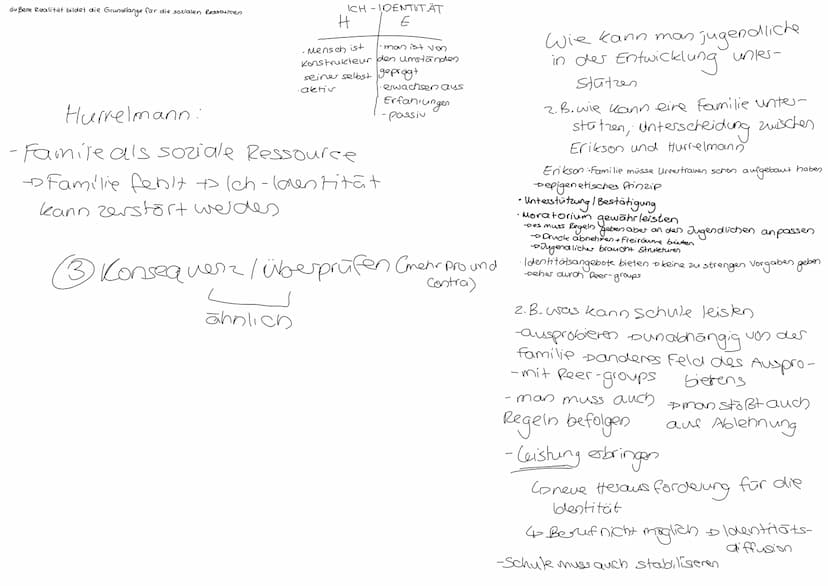 äußere Realität bildet die Grundlage für die sozialen Ressourcen
ICH-IDENTITÄT
H E
· Mensch ist
Konstrukteur
seiner selbst
· aktiv
· man ist von
den Umständen
geprägt
· erwachsen aus
Erfahrungen
- passiv
Hurrelmann:
- Familie als soziale Ressource
→ Familie fehlt → Ich-Identität
kann zerstört werden
③ Konsequenz / überprüfen (mehr pro und
contra)
ähnlich
Wie kann man jugendliche
in der Entwicklung unter-
stützen
z.B. wie kann eine Familie unter-
stützen, Unterscheidung zwischen
Erikson und Hurrelmann
Erikson · Familie müsse Urvertrauen schon aufgebaut haben
→ epigenetisches Prinzip
· Unterstützung / Bestätigung
· Moratorium gewährleisten
→ es muss Regeln geben aber an den Jugendlichen anpassen
→ Druck abnehmen + Freiräume bieten
→ Jugendlicher braucht Strukturen
· Identitätsangebote bieten → keine zu strengen Vorgaben geben
→ eher durch Peer-groups
z.B. was kann Schule leisten
- ausprobieren → unabhängig von der
Familie → anderes Feld des Auspro-
bierens
- mit Peer-groups
- man muss auch
Regeln befolgen
→ man stößt auch
auf Ablehnung
- Leistung erbringen
↳ neue Herausforderung für die
Identität
↳ Beruf nicht möglich → Identitäts-
diffusion
- Schule muss auch stabilisieren